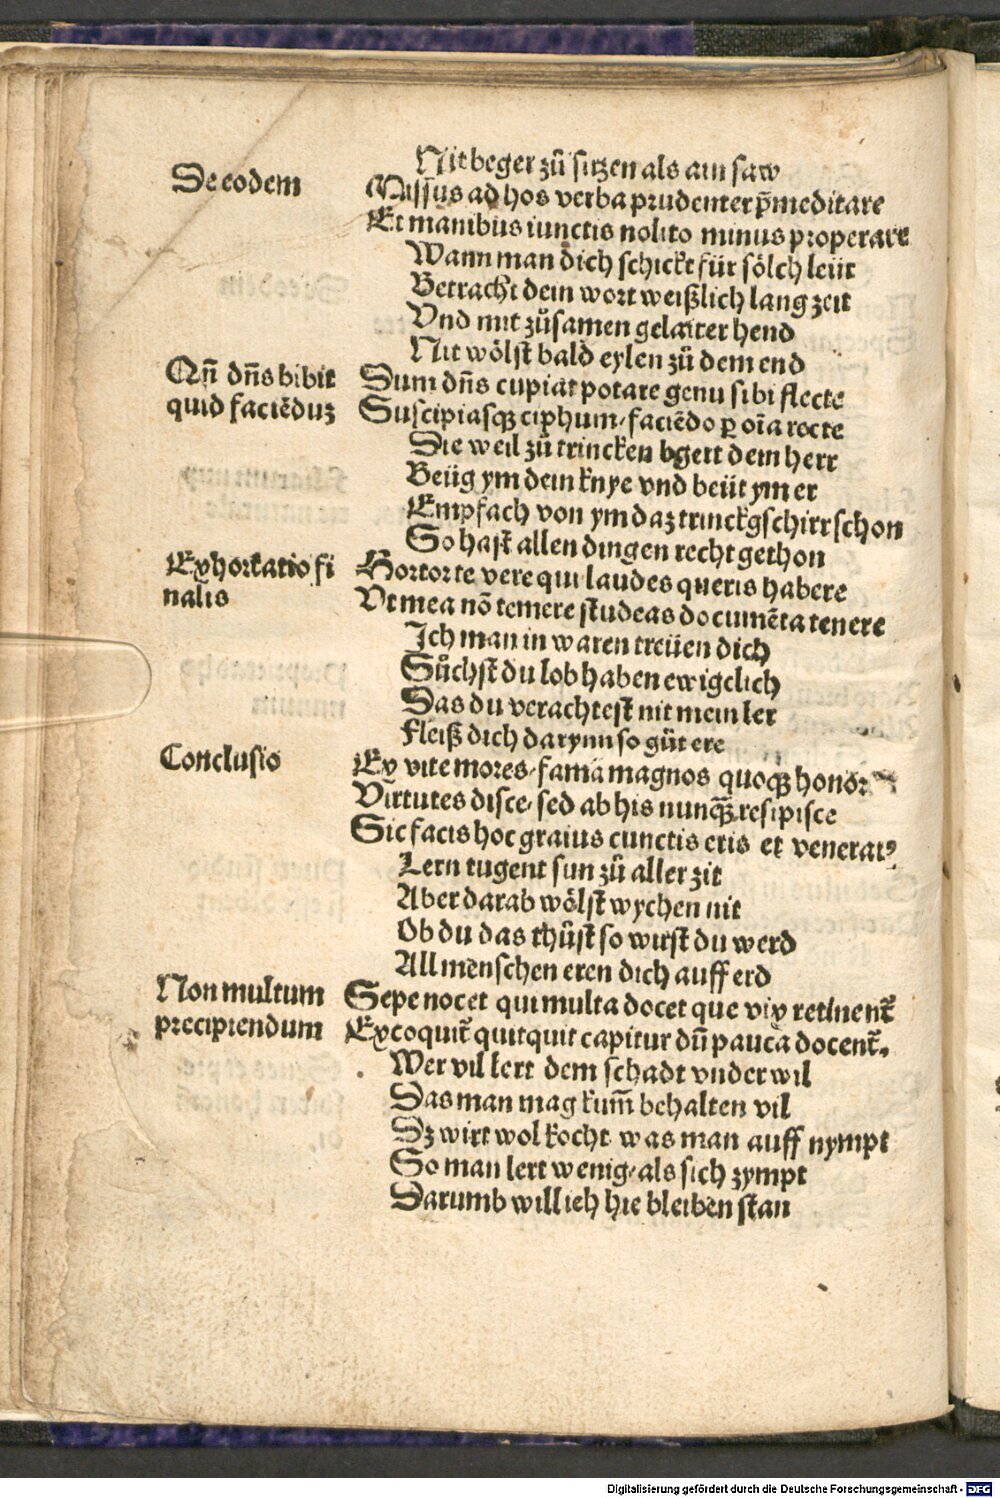 Nit beger zů sitzen als ain saw
De eodem
Missus ad hos verba prudenter p̄meditare
Et manibus iunctis nolito minus properare
Wann man dich schickt für sölch leüt
Betracht dein wort weißlich lang zeit
Vnd mit zůsamen gelaiter hend
Nit wölst bald eylen zů dem end
Qñ dñs bibit
quid faciēduꝫ
Dum dñs cupiat potare genu sibi flecte
Suscipiasqꝫ ciphum/ faciēdo ꝑ oīa recte
Die weil zů trincken bgert dem herr
Beüg ym dein knye vnd beüt ym er
Empfach von ym daz trinckgschirr schon
So hast allen dingen recht gethon
Exhortatio fi
nalis
Hortor te vere qui laudes queris habere
Vt mea nō temere studeas documēta tenere
Ich man in waren treüen dich
Sůchst du lob haben ewigclich
Das du verachtest nit mein ler
Fleiß dich darynn so güt ere
Conclusio
Ex vite mores/ famā magnos quoqꝫ honor
Virtutes disce/ sed ab his nunqꝫ̄ resipisce
Sic facis hoc gratus cunctis eris et veneratꝰ
Lern tugent sun zů aller zit
Aber darab wölst wychen nit
Ob du das thůst so wirst du werd
All menschen eren dich auff erd
Non multum
precipiendum
Sepe nocet qui multa docet que vix retinent᷑
Excoquit᷑ quitquit capitur dū pauca docent᷑.
Wer vil lert dem schadt vnderwil
Das man mag kum̄ behalten vil
Dz wirt wol kocht was man auff nympt
So man lert wenig/ als sich zympt
Darumb will ich hie bleiben stan
Digitalisierung gefördert durch die Deutsche Forschungsgemeinschaft - DFG